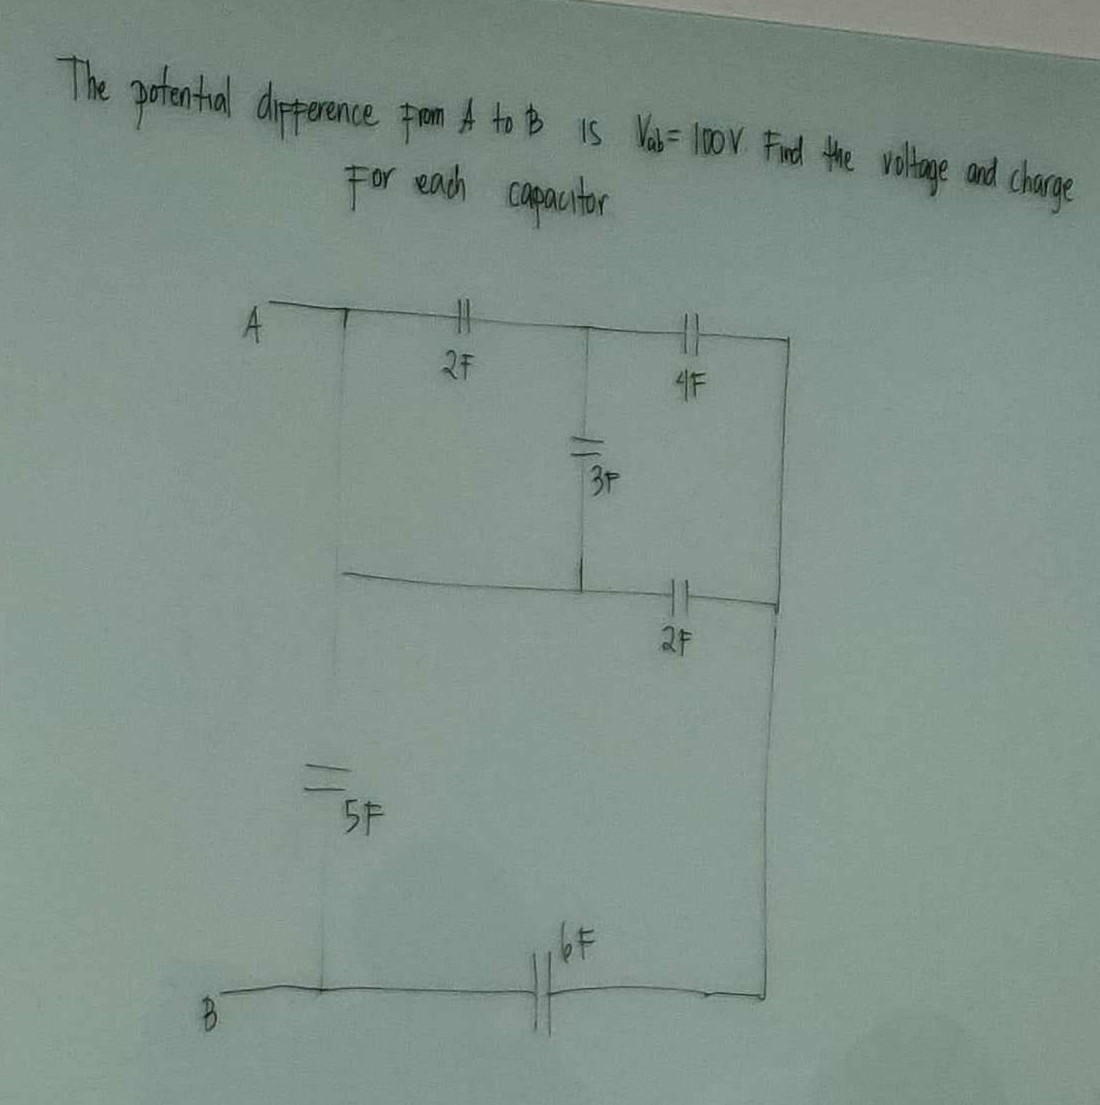 The potential difference from A to B is Vab = 100V. Find the voltage and charge
For each capacitor
A
2F
4F
3F
2F
5F
6F
B